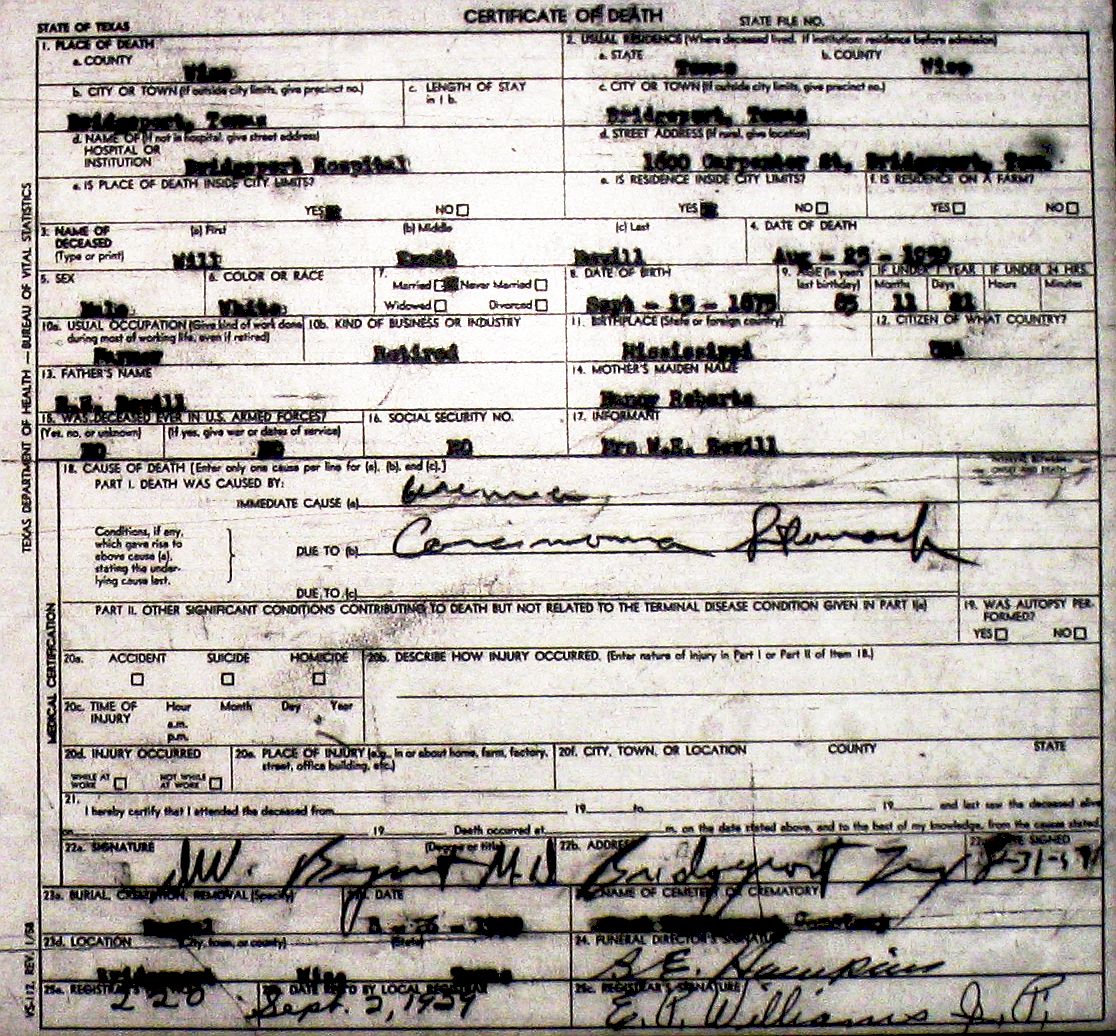 CERTIFICATE OF DEATH
STATE OF TEXAS STATE FILE NO.
1. PLACE OF DEATH
a. COUNTY
Wise
2. USUAL RESIDENCE (Where deceased lived. If institution: residence before admission)
a. STATE b. COUNTY
Texas Wise
b. CITY OR TOWN (If outside city limits, give precinct no.)
Bridgeport, Texas
c. LENGTH OF STAY
in 1 b.
c. CITY OR TOWN (If outside city limits, give precinct no.)
Bridgeport, Texas
d. NAME OF (If not in hospital, give street address)
HOSPITAL OR
INSTITUTION
Bridgeport Hospital
d. STREET ADDRESS (If rural, give location)
1600 Carpenter St, Bridgeport, Texas
e. IS PLACE OF DEATH INSIDE CITY LIMITS?
YES NO
e. IS RESIDENCE INSIDE CITY LIMITS?
YES NO
f. IS RESIDENCE ON A FARM?
YES NO
3. NAME OF
DECEASED
(Type or print)
(a) First (b) Middle (c) Last
Will
4. DATE OF DEATH
Aug - 25 - 1959
5. SEX
Male
6. COLOR OR RACE
White
7.
Married Never Married
Widowed Divorced
8. DATE OF BIRTH
Sept - 15 - 1873
9. AGE (In years
last birthday)
85
IF UNDER 1 YEAR
Months Days
11 21
IF UNDER 24 HRS.
Hours Minutes
10a. USUAL OCCUPATION (Give kind of work done
during most of working life, even if retired)
Farmer
10b. KIND OF BUSINESS OR INDUSTRY
Retired
11. BIRTHPLACE (State or foreign country)
Mississippi
12. CITIZEN OF WHAT COUNTRY?
USA
13. FATHER'S NAME
14. MOTHER'S MAIDEN NAME
Nancy Roberts
15. WAS DECEASED EVER IN U.S. ARMED FORCES?
(Yes, no, or unknown) (If yes, give war or dates of service)
NO NO
16. SOCIAL SECURITY NO.
NO
17. INFORMANT
Mrs W.E.
18. CAUSE OF DEATH [Enter only one cause per line for (a), (b), and (c).]
PART I. DEATH WAS CAUSED BY:
IMMEDIATE CAUSE (a) Uremia
ONSET AND DEATH
Conditions, if any,
which gave rise to
above cause (a),
stating the under-
lying cause last.
DUE TO (b) Carcinoma Stomach
DUE TO (c)
PART II. OTHER SIGNIFICANT CONDITIONS CONTRIBUTING TO DEATH BUT NOT RELATED TO THE TERMINAL DISEASE CONDITION GIVEN IN PART I(a)
19. WAS AUTOPSY PER-
FORMED?
YES NO
20a. ACCIDENT SUICIDE HOMICIDE
20b. DESCRIBE HOW INJURY OCCURRED. (Enter nature of injury in Part I or Part II of Item 18.)
20c. TIME OF
INJURY
Hour Month Day Year
a.m.
p.m.
20d. INJURY OCCURRED
WHILE AT
WORK
NOT WHILE
AT WORK
20e. PLACE OF INJURY (e.g., in or about home, farm, factory,
street, office building, etc.)
20f. CITY, TOWN, OR LOCATION COUNTY STATE
21.
I hereby certify that I attended the deceased from 19 to 19 and last saw the deceased alive
on 19 Death occurred at m. on the date stated above, and to the best of my knowledge, from the causes stated.
22a. SIGNATURE (Degree or title)
Bryant M.D
22b. ADDRESS
Bridgeport Tex
DATE SIGNED
8-31-59
23a. BURIAL, CREMATION, REMOVAL (Specify)
Burial
DATE
8 - 26 - 1959
NAME OF CEMETERY OR CREMATORY
Cemetery
23d. LOCATION (City, town, or county) (State)
Bridgeport Wise Texas
24. FUNERAL DIRECTOR'S SIGNATURE
Hawkins
25a. REGISTRAR'S
220
DATE REC'D BY LOCAL REGISTRAR
Sept. 2, 1959
25c. REGISTRAR'S SIGNATURE
E. P. Williams J.P.
TEXAS DEPARTMENT OF HEALTH — BUREAU OF VITAL STATISTICS
MEDICAL CERTIFICATION
VS-112, REV. 1/58